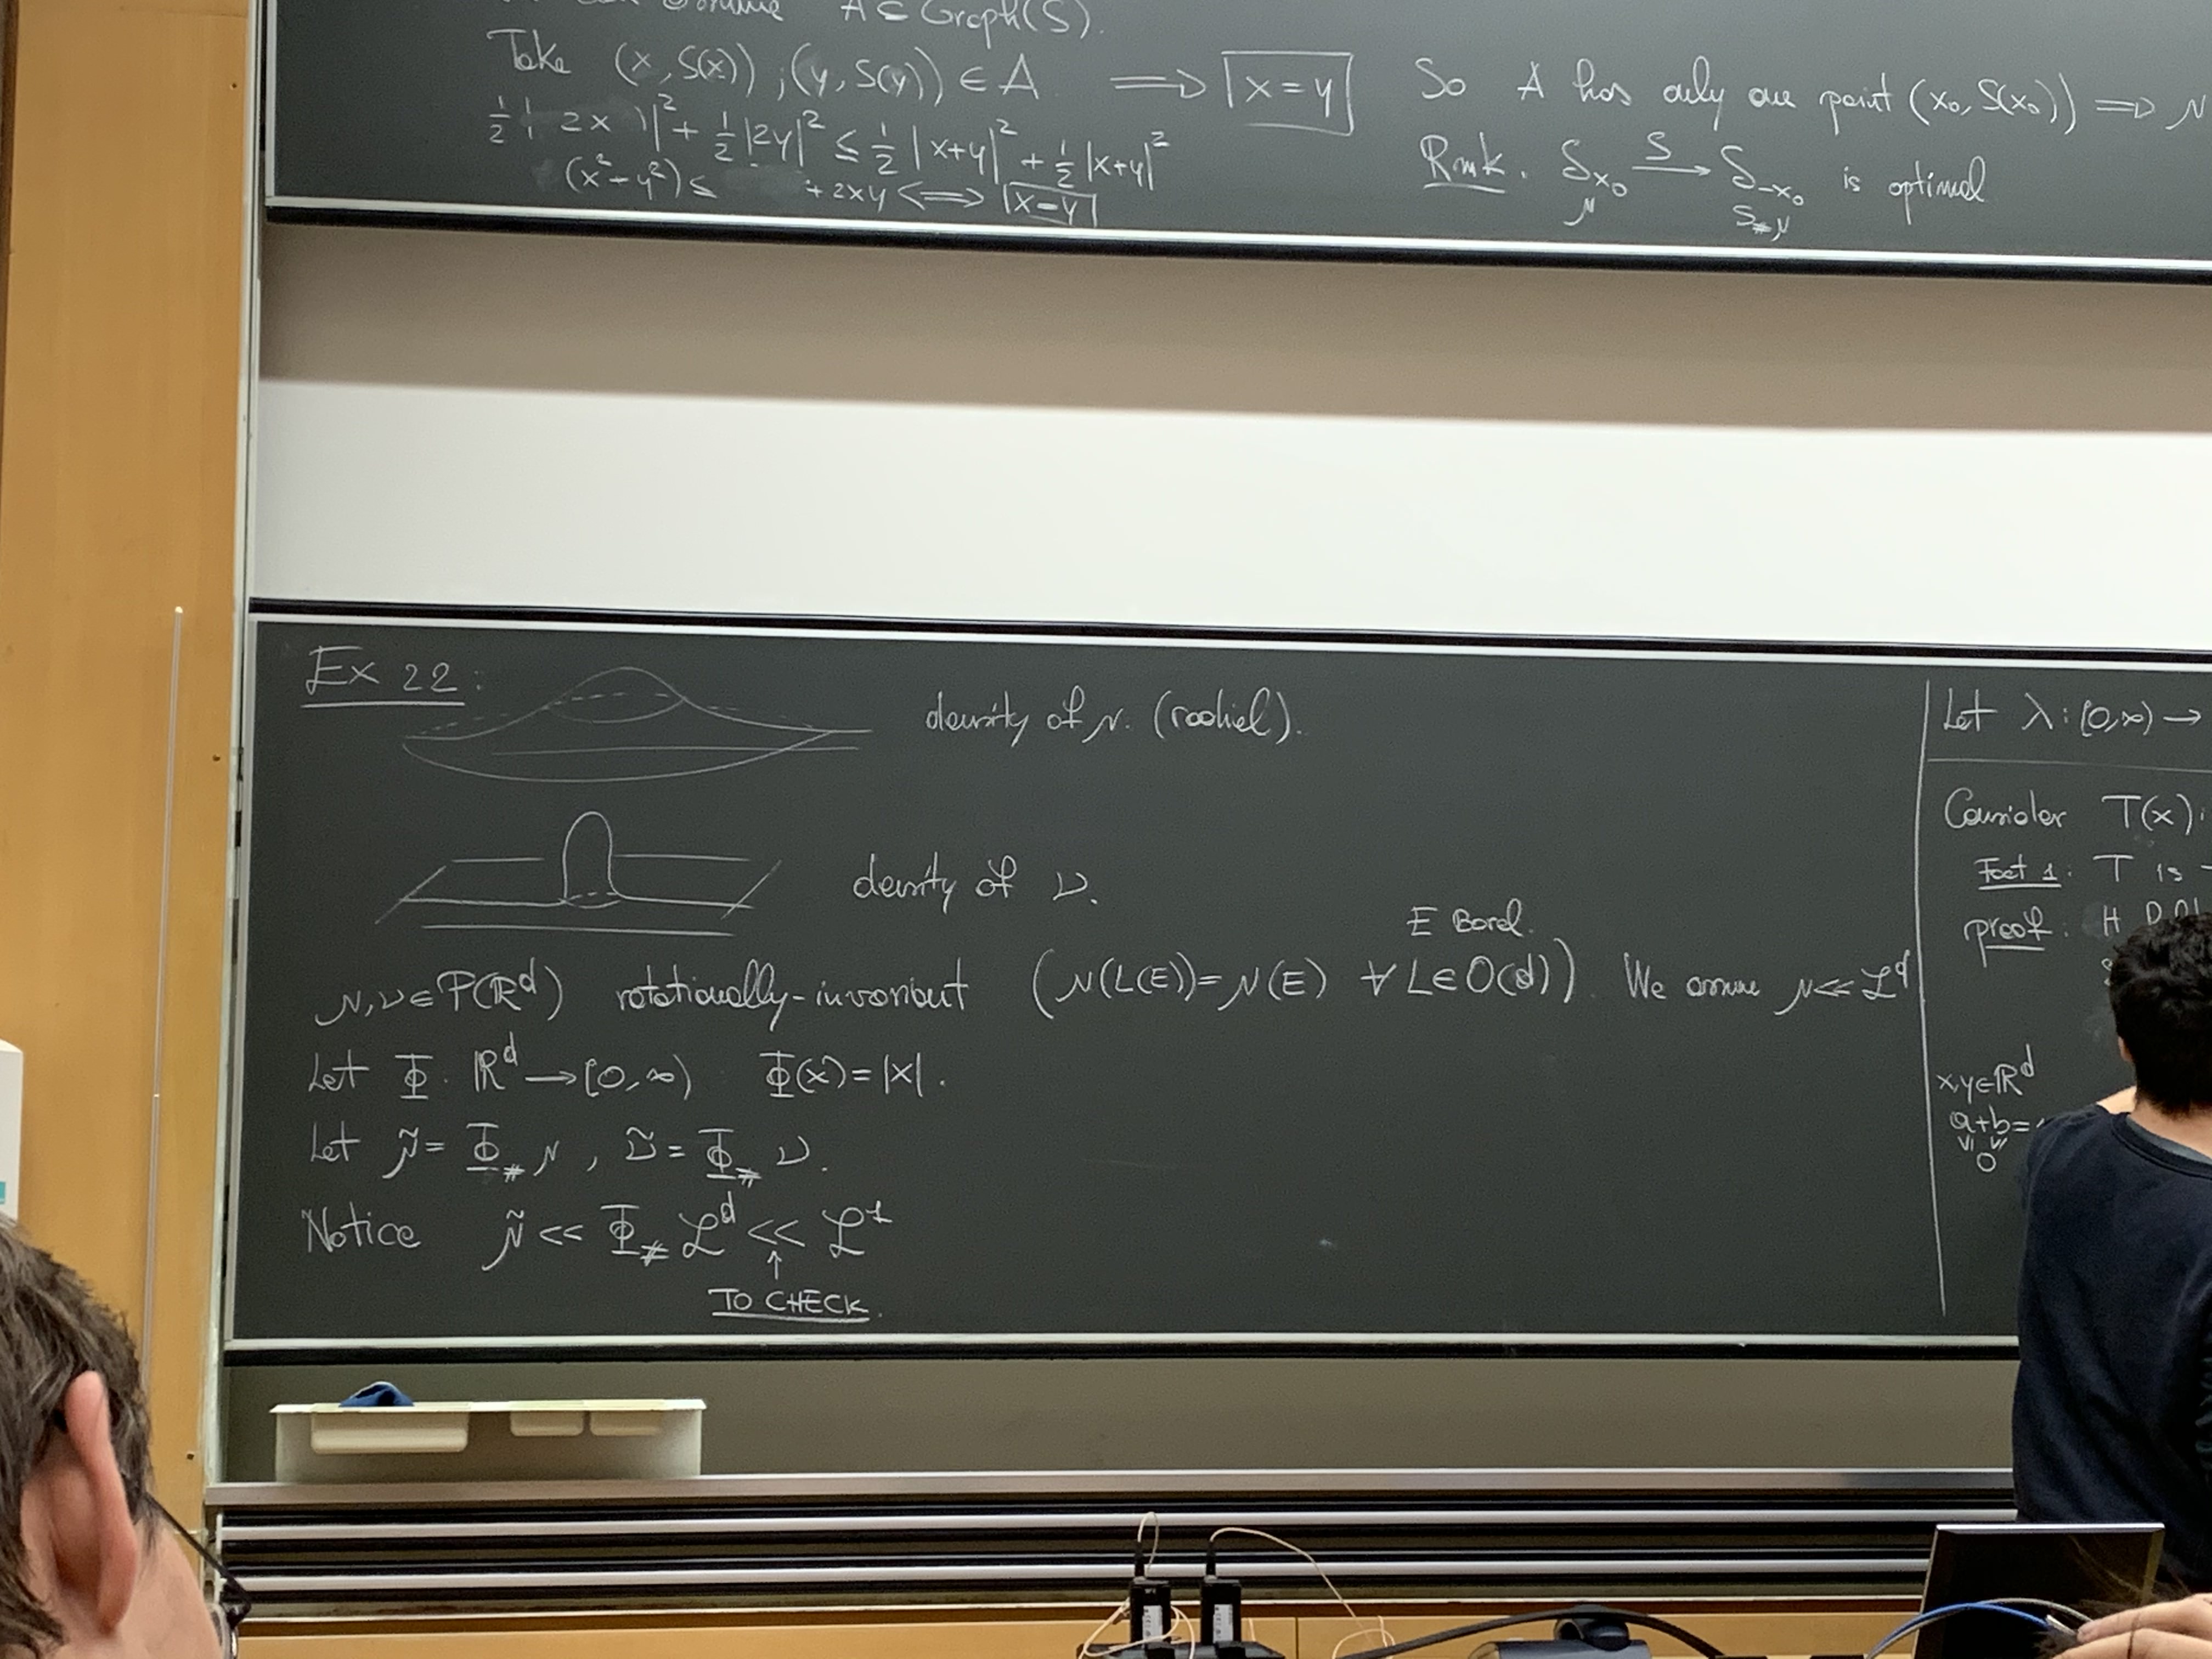 A ⊆ Graph(S).
Take (x, S(x)), (y, S(y)) ∈ A ⟹ x = y
½| 2x )|² + ½|2y|² ≤ ½|x+y|² + ½|x+y|²
(x² + y²) ≤ + 2xy ⟺ x = y
So A has only one point (x₀, S(x₀)) ⟹ μ
Rmk. δ_{x₀} —S→ δ_{-x₀} is optimal
μ S_#μ
Ex 22:
density of μ. (radial).
density of ν.
E Borel.
μ, ν ∈ P(ℝᵈ) rotationally-invariant (μ(L(E)) = μ(E) ∀ L ∈ O(d)). We assume μ << ℒᵈ
Let Φ: ℝᵈ → [0, ∞) Φ(x) = |x|.
Let μ̃ = Φ_# μ, ν̃ = Φ_# ν.
Notice μ̃ << Φ_# ℒᵈ << ℒ¹
↑
TO CHECK.
Let λ: [0, ∞) →
Consider T(x):
Fact 1: T is
proof:
x, y ∈ ℝᵈ
a + b =
0